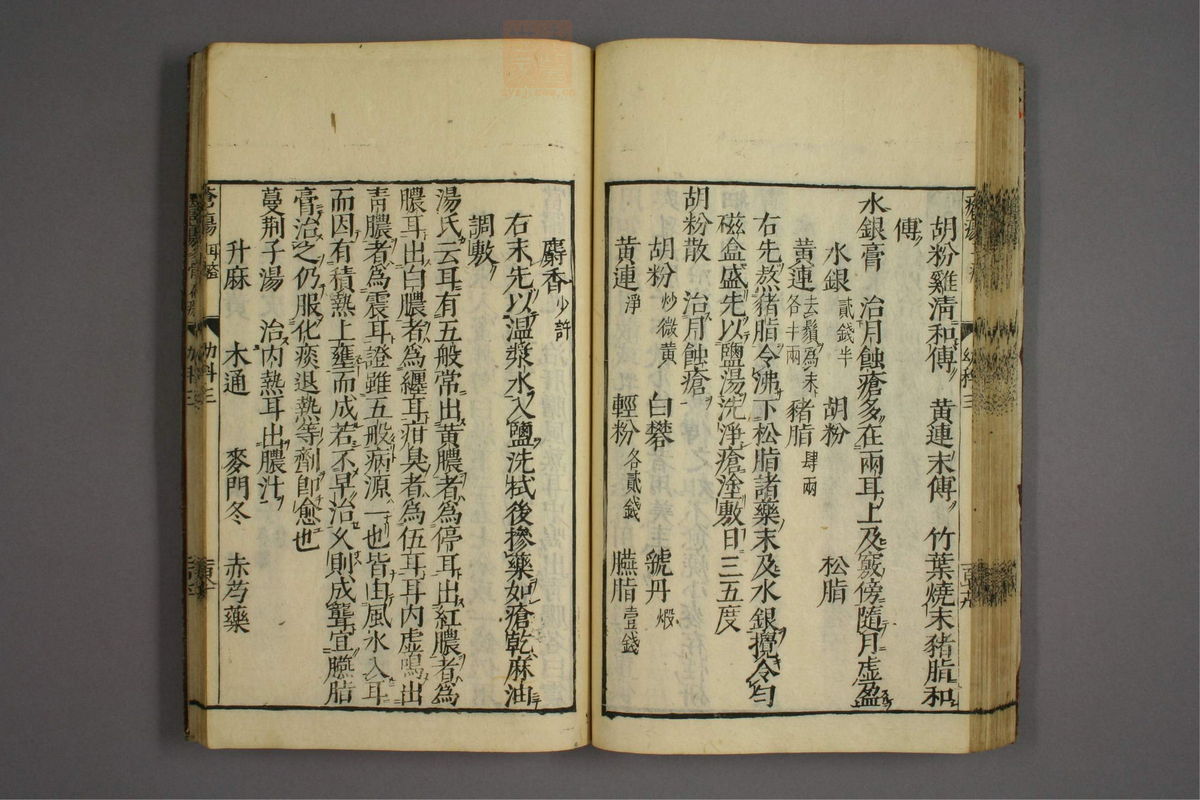 胡粉雞清和傅 黄連末傅 竹葉燒末豬脂和
傅
水銀膏 治月蝕瘡多在兩耳上及竅傍隨月虚盈
水銀貳錢半 胡粉 松脂
黄連去鬚爲末各半兩 豬脂肆兩
右先熬豬脂令沸下松脂諸藥末及水銀攪令匀
磁盒盛先以鹽湯洗淨瘡塗敷日三五度
胡粉散 治月蝕瘡
胡粉炒微黄 白礬 號丹煅
黄連淨 輕粉各貳錢 臙脂壹錢
麝香少許
右末先以温漿水入鹽洗拭後摻藥如瘡乾麻油
調敷
湯氏云耳有五般常出黄膿者爲停耳出紅膿者爲
膿耳出白膿者爲纏耳疳臭者爲伍耳耳内虚鳴出
青膿者爲震耳證雖五般病源一也皆由風水入耳
而因有積熱上壅而成若不早治久則成聾宜臙脂
膏治之仍服化痰退熱等劑卽愈也
蔓荆子湯 治内熱耳出膿汁
升麻 木通 麥門冬 赤芍藥
幼科三